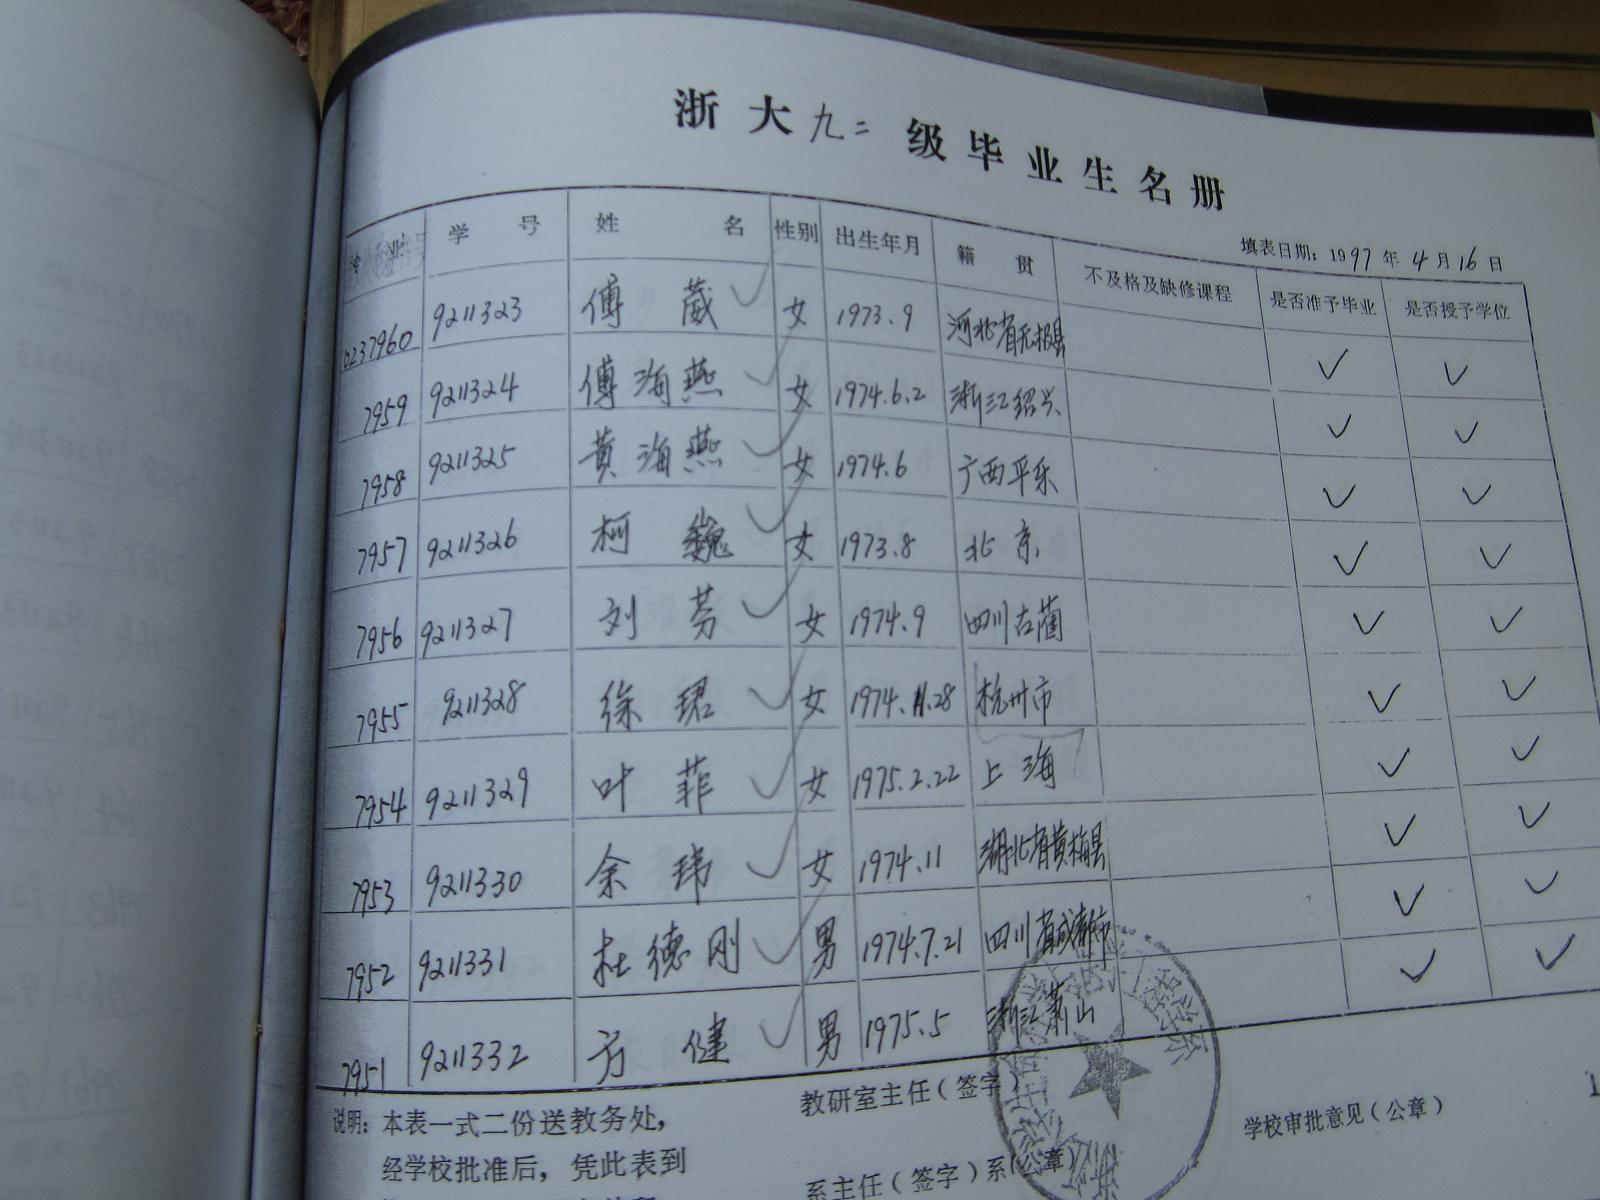 浙大九二级毕业生名册
填表日期：1997年4月16日
学号 姓名 性别 出生年月 籍贯 不及格及缺修课程 是否准予毕业 是否授予学位
0237960 9211323 傅葳 女 1973.9 河北省无极县 ✓ ✓
7959 9211324 傅海燕 女 1974.6.2 浙江绍兴 ✓ ✓
7958 9211325 黄海燕 女 1974.6 广西平乐 ✓ ✓
7957 9211326 柯巍 女 1973.8 北京 ✓ ✓
7956 9211327 刘芬 女 1974.9 四川古蔺 ✓ ✓
7955 9211328 徐珺 女 1974.11.28 杭州市 ✓ ✓
7954 9211329 叶菲 女 1975.2.22 上海 ✓ ✓
7953 9211330 余玮 女 1974.11 湖北省黄梅县 ✓ ✓
7952 9211331 杜德刚 男 1974.7.21 四川省成都市 ✓ ✓
7951 9211332 方健 男 1975.5 浙江萧山 ✓ ✓
说明：本表一式二份送教务处，
经学校批准后，凭此表到
教研室主任（签字）
系主任（签字）系（公章）
学校审批意见（公章）